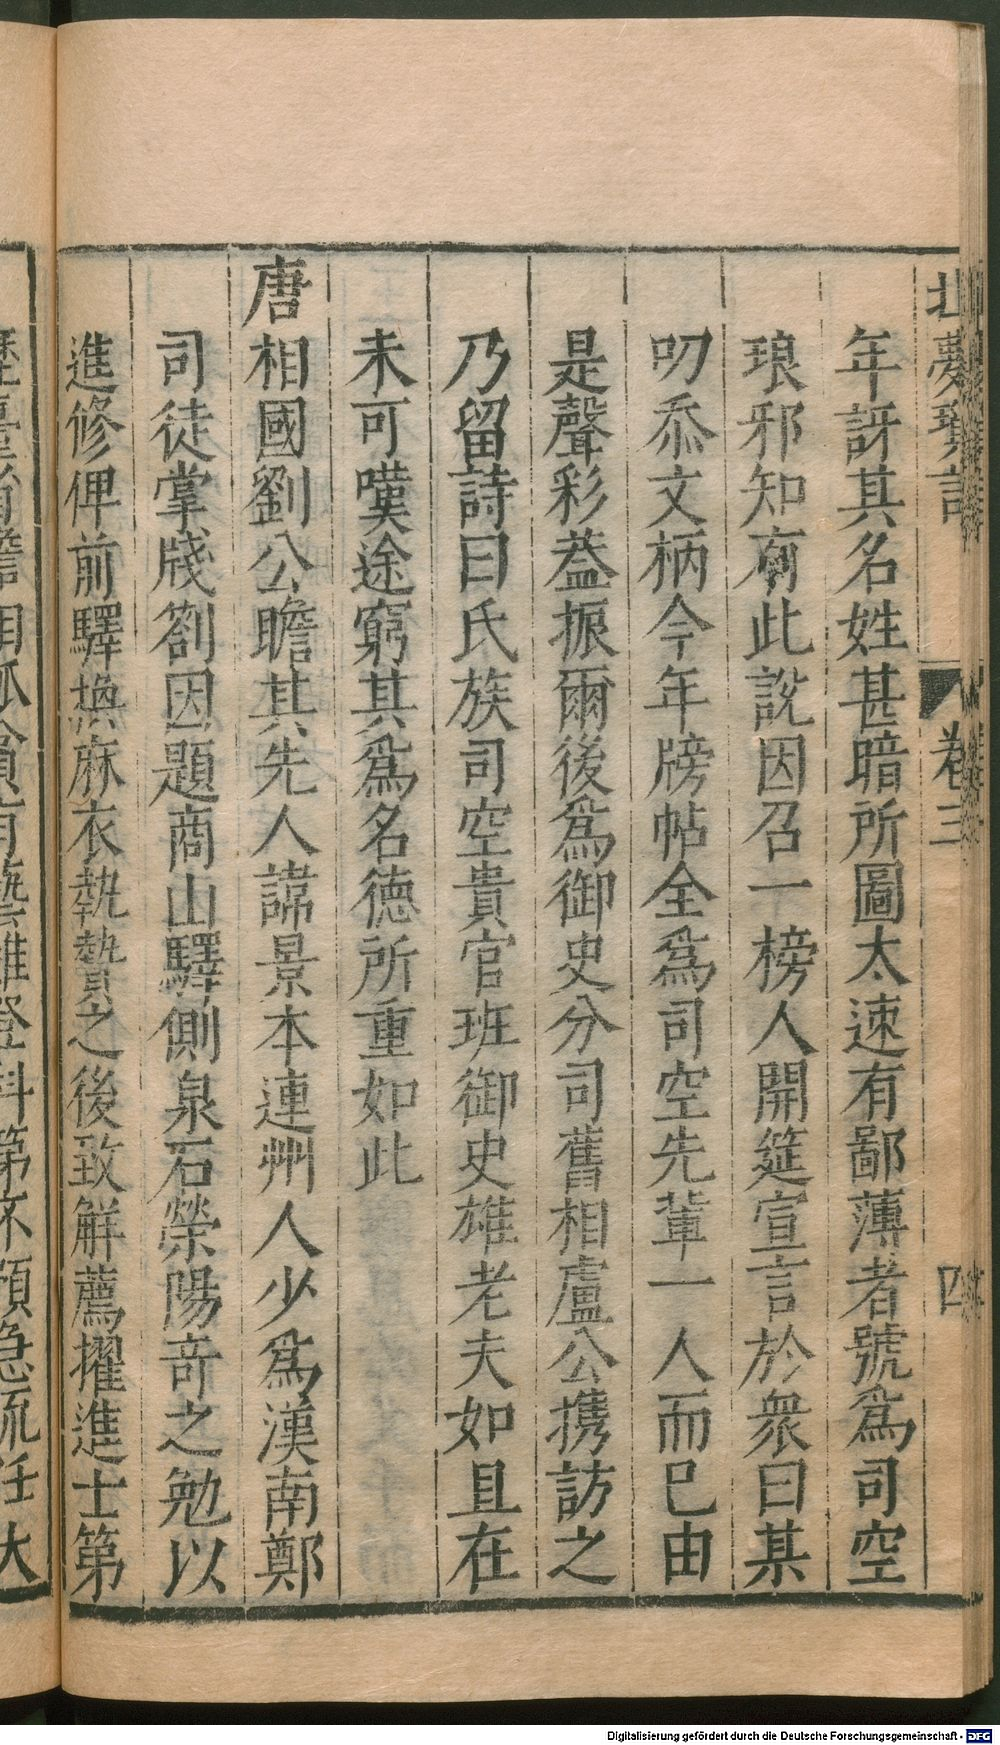 北夢瑣言 卷三 四
年訝其名姓甚暗所圖太速有鄙薄者號爲司空
琅邪知有此說因召一榜人開筵宣言於衆曰某
叨忝文柄今年牓帖全爲司空先輩一人而已由
是聲彩葢振爾後爲御史分司舊相盧公携訪之
乃留詩曰氏族司空貴官班御史雄老夫如且在
未可嘆途窮其爲名德所重如此
唐相國劉公瞻其先人諱景本連州人少爲漢南鄭
司徒掌牋劄因題商山驛側泉石滎陽竒之勉以
進修俾前驛換麻衣執贄之後致解薦擢進士第
Digitalisierung gefördert durch die Deutsche Forschungsgemeinschaft - DFG